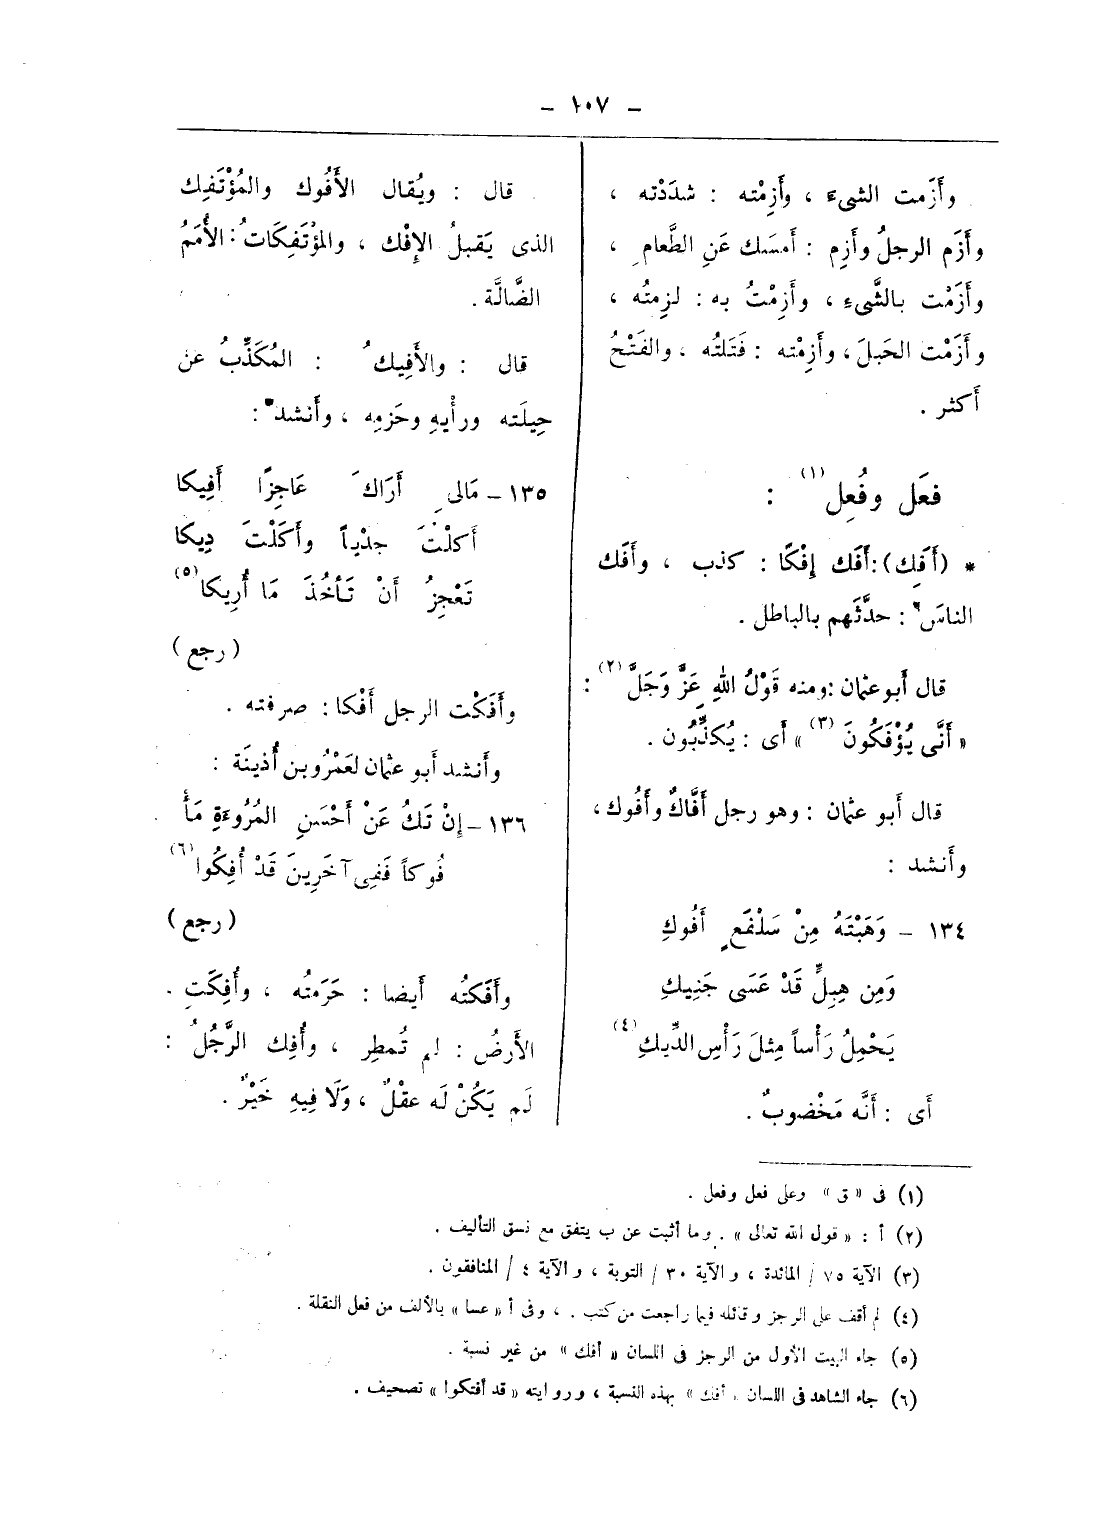 – ١٠٧ –
وأَزَمت الشىء ، وأَزِمْته : شدَدْته ،
وأَزَم الرجلُ وأَزِم : أَمسَك عَنِ الطَّعام ،
وأَزَمْت بالشَّىءِ ، وأَزِمْتُ به : لزِمتُه ،
وأَزَمْت الحَبلَ، وأَزِمْته : فَتَلتُه ، والفَتْحُ
أَكثر .
فعَل وفُعِل (١) :
* (أَفَك):أَفَك إِفْكًا : كذب ، وأَفَك
الناسَ : حدَّثَهم بالباطل .
قال أَبو عثمان :ومنه قَوْلُ اللهِ عَزَّ وَجَلَّ (٢) :
« أَنَّى يُؤْفَكُونَ (٣) » أَى : يُكذَّبُون .
قال أَبو عثمان : وهو رجل أَفَّاكٌ وأَفُوك،
وأَنشد :
١٣٤ – وَهَبْتَهُ مِنْ سَلْفَعٍ أَفُوكِ
وَمِن هِبِلٍّ قَدْ عَسَى حَنِيكِ
يَحْمِلُ رَأْساً مِثلَ رَأْسِ الدِّيكِ (٤)
أَى : أَنَّه مَخْضوبٌ .
قال : ويُقال الأَفُوك والمُؤْتَفِك
الذى يَقبلُ الإِفْك ، والمؤْتَفِكَاتُ : الأُمَمُ
الضَّالَّة .
قال : والأَفِيكُ : المُكَذَّبُ عن
حِيلَته ورأْيهِ وحَزمِه ، وأَنشد :
١٣٥ – مَالِى أَرَاكَ عَاجِزًا أَفِيكا
أَكلْتَ جدْياً وأَكَلْتَ دِيكا
تَعْجِزُ أَنْ تَأْخُذَ مَا أُرِيكا (٥)
( رجع )
وأَفَكْت الرجل أَفْكا : صرفته .
وأَنشد أَبو عثمان لعَمْرُو بن أُذينَة :
١٣٦ – إِنْ تَكُ عَنْ أَحْسَنِ المُرُوءَةِ مَأْ
فُوكاً فَفِى آخَرِينَ قَدْ أُفِكُوا (٦)
( رجع )
وأَفَكتُه أَيضا : حَرَمتُه ، وأُفِكَتِ
الأَرضُ : لم تُمطِر ، وأُفِك الرَّجُلُ :
لَم يَكُنْ لَه عقْلٌ ، وَلَا فِيهِ خَيْرٌ .
(١) فى « ق » وعلى فعل وفعل .
(٢) أ : « قول الله تعالى » . وما أثبت عن ب يتفق مع نسق التأليف .
(٣) الآية ٧٥ / المائدة ، والآية ٣٠ / التوبة ، والآية ٤ / المنافقون .
(٤) لم أقف على الرجز وقائله فيما راجعت من كتب . ، وفى أ « عسا » بالألف من فعل النقلة .
(٥) جاء البيت الأول من الرجز فى اللسان « أفك » من غير نسبة .
(٦) جاء الشاهد فى اللسان « أفك » بهذه النسبة ، وروايته « قد أفتكوا » تصحيف .